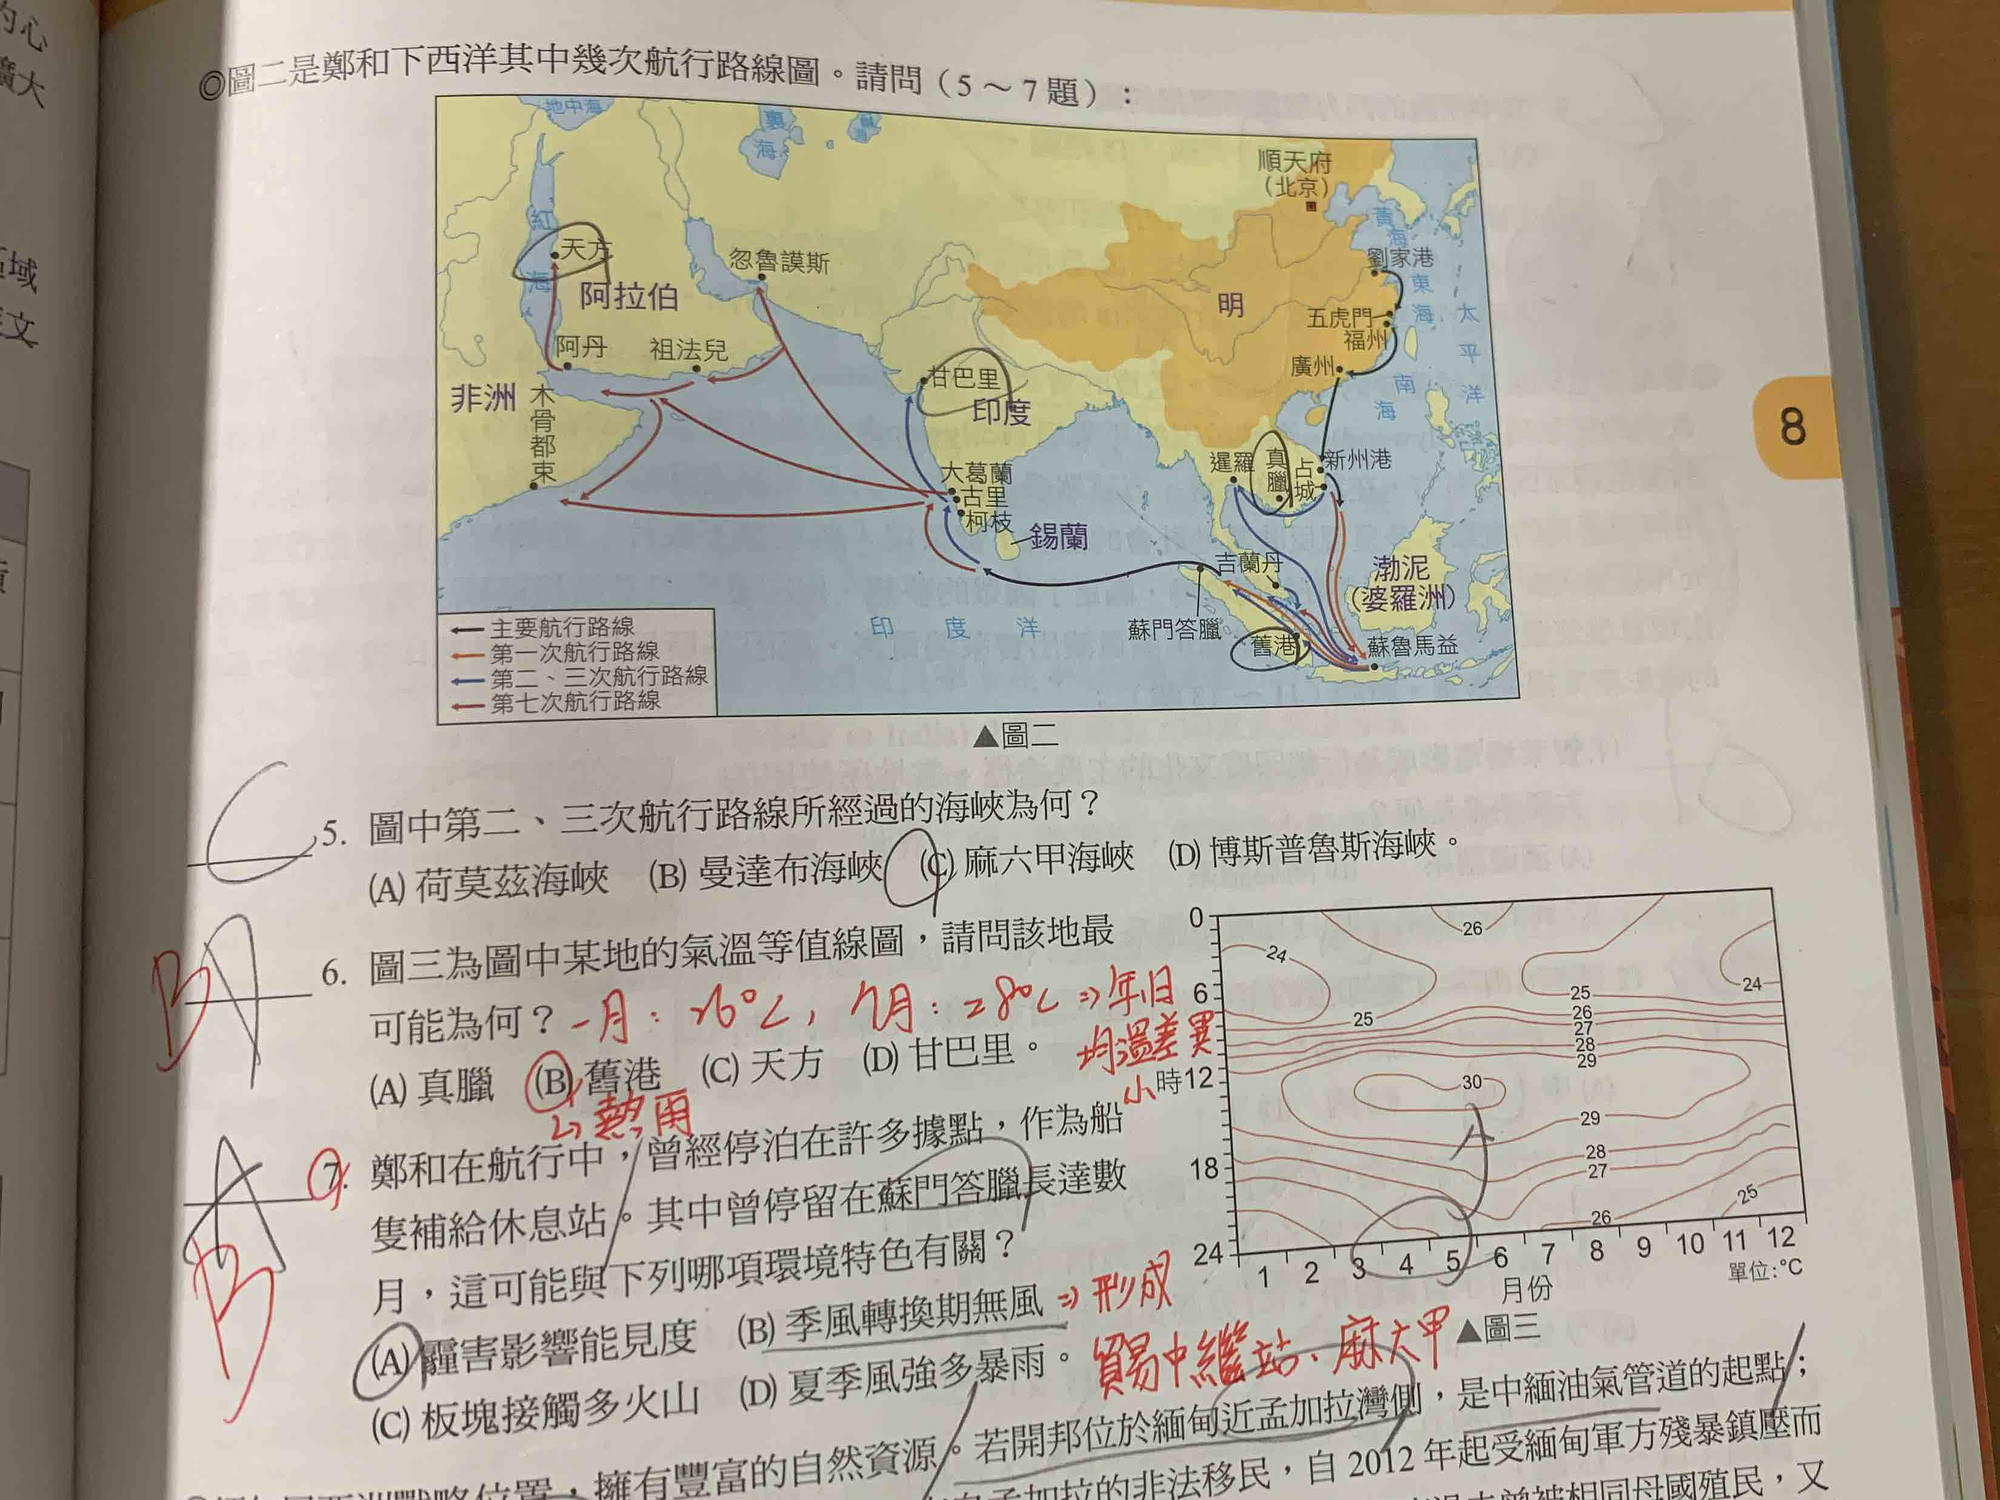 的心
擴大
區域
文
◎圖二是鄭和下西洋其中幾次航行路線圖。請問（5～7題）：
地中海
裏海
順天府
（北京）
黃海
紅海
天方
忽魯謨斯
劉家港
東海
阿拉伯
明
五虎門
太平洋
福州
阿丹
祖法兒
廣州
甘巴里
南海
非洲
木骨都束
印度
大葛蘭
暹羅
真臘
占城
新州港
古里
柯枝
錫蘭
吉蘭丹
渤泥
（婆羅洲）
印度洋
蘇門答臘
舊港
蘇魯馬益
主要航行路線
第一次航行路線
第二、三次航行路線
第七次航行路線
▲圖二
8
C
5. 圖中第二、三次航行路線所經過的海峽為何？
(A) 荷莫茲海峽 (B) 曼達布海峽 (C) 麻六甲海峽 (D) 博斯普魯斯海峽。
B A
6. 圖三為圖中某地的氣溫等值線圖，請問該地最
可能為何？ 一月：26°C，7月：28°C ⇒ 年日
均溫差異
小
(A) 真臘 (B) 舊港 (C) 天方 (D) 甘巴里。
熱雨
A
B
7. 鄭和在航行中，曾經停泊在許多據點，作為船
隻補給休息站。其中曾停留在蘇門答臘長達數
月，這可能與下列哪項環境特色有關？
(A) 霾害影響能見度 (B) 季風轉換期無風 ⇒ 形成
貿易中繼站、麻六甲
(C) 板塊接觸多火山 (D) 夏季風強多暴雨。
0
6
時12
18
24
24
26
25
24
25
26
27
28
29
30
29
28
27
26
25
1 2 3 4 5 6 7 8 9 10 11 12
月份
單位:°C
▲圖三
擁有豐富的自然資源。若開邦位於緬甸近孟加拉灣側，是中緬油氣管道的起點；
孟加拉的非法移民，自 2012 年起受緬甸軍方殘暴鎮壓而
曾被相同母國殖民，又